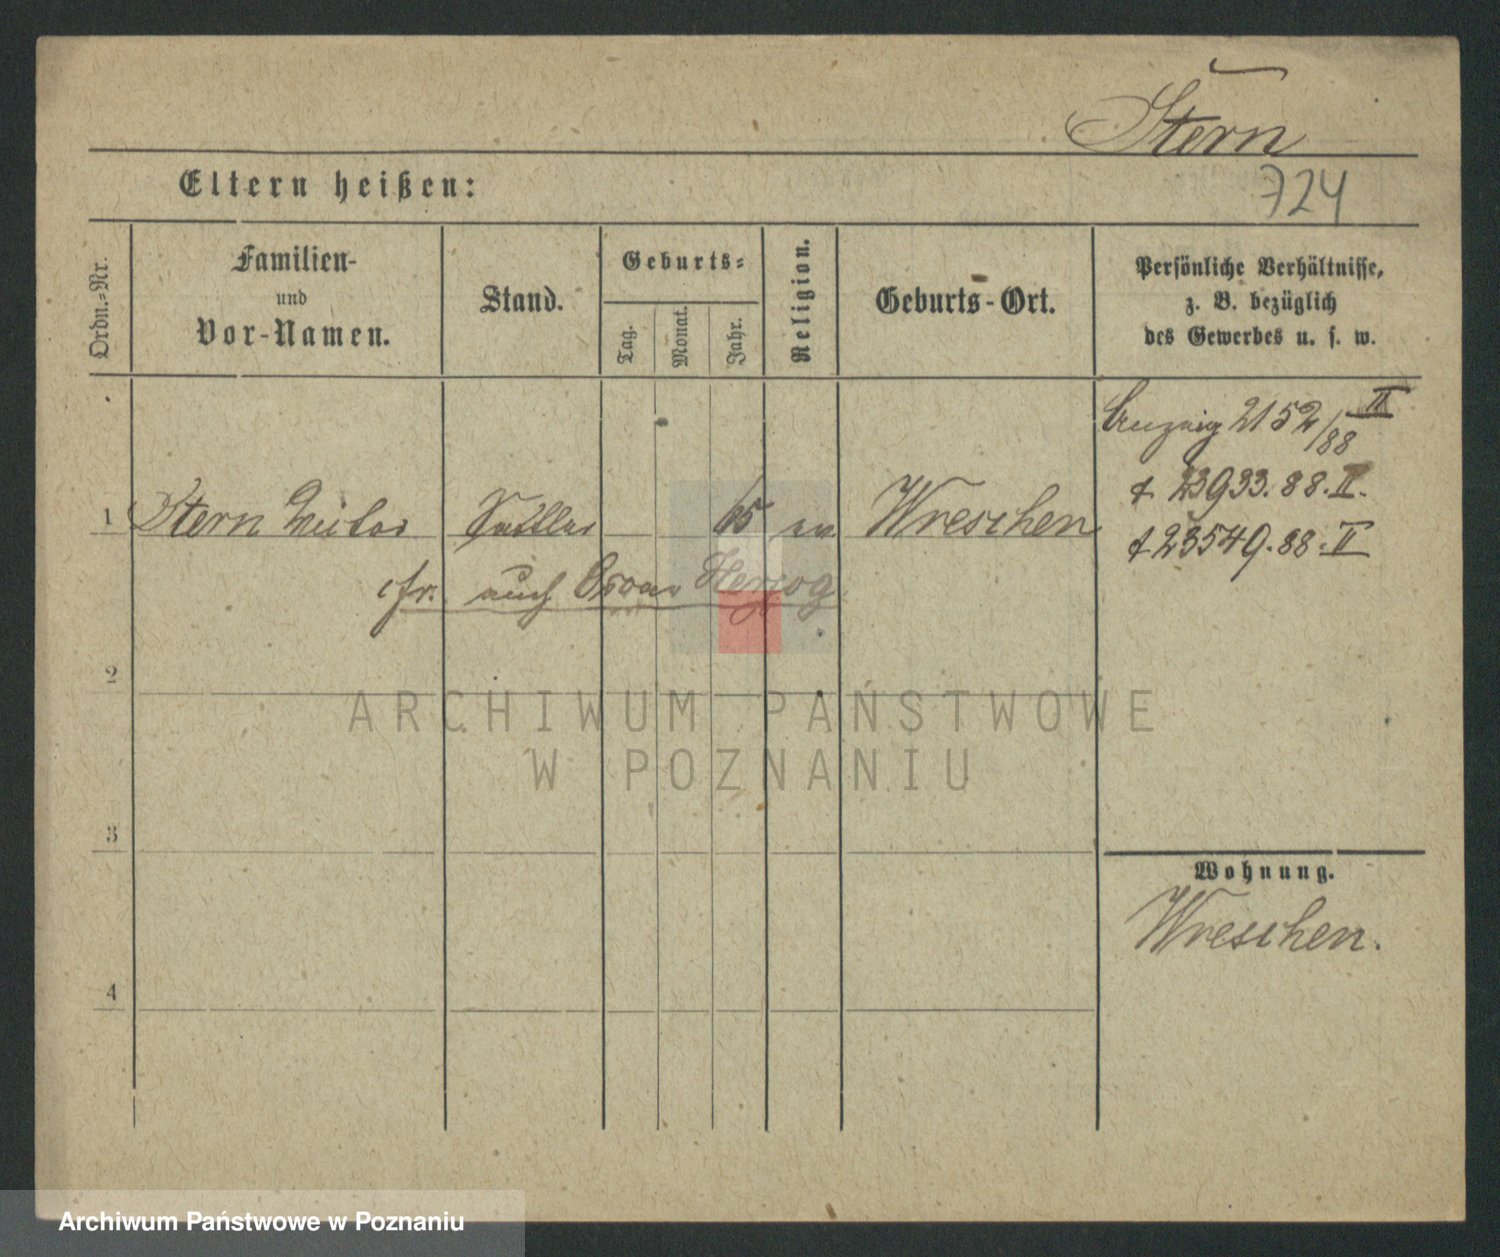 Stern
Eltern heißen:
724
Ordn.-Nr.
Familien-
und
Vor-Namen.
Stand.
Geburts-
Tag.
Monat.
Jahr.
Religion.
Geburts-Ort.
Persönliche Verhältnisse,
z. B. bezüglich
des Gewerbes u. s. w.
Anzeig 2152/88 II
† 23933.88.II.
1 Stern Sattler 65 ev Wreschen
† 23549.88.II
cfr. auch Oscar Herzog
2
ARCHIWUM PAŃSTWOWE
W POZNANIU
3
Wohnung.
Wreschen.
4
Archiwum Państwowe w Poznaniu